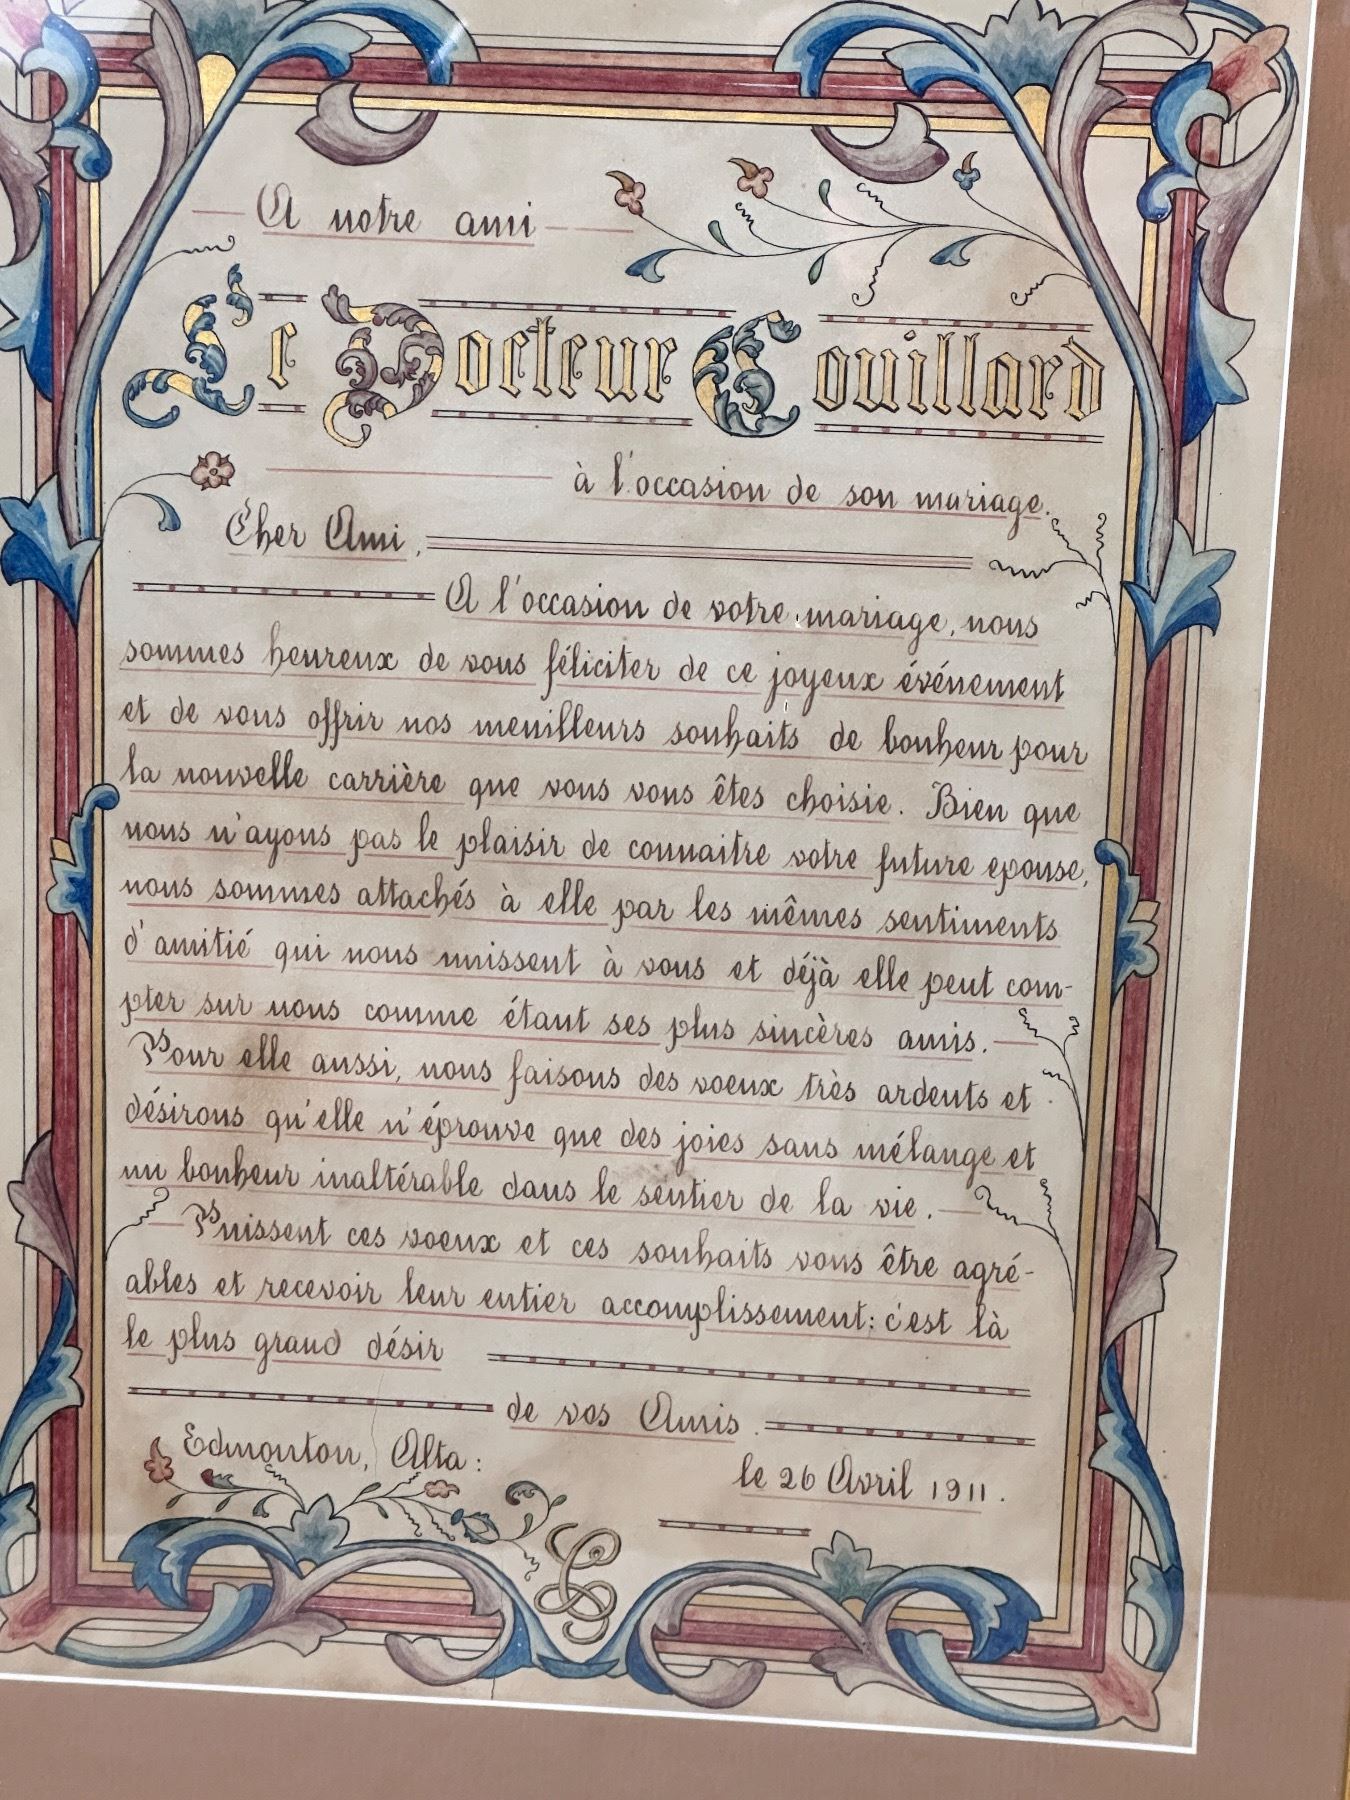 A notre ami
Le Docteur Couillard
à l'occasion de son mariage.
Cher Ami,
A l'occasion de votre mariage, nous
sommes heureux de vous féliciter de ce joyeux événement
et de vous offrir nos meuilleurs souhaits de bonheur pour
la nouvelle carrière que vous vous êtes choisie. Bien que
nous n'ayons pas le plaisir de connaitre votre future epouse,
nous sommes attachés à elle par les mêmes sentiments
d'amitié qui nous unissent à vous et déjà elle peut com-
pter sur nous comme étant ses plus sincères amis.
Pour elle aussi, nous faisons des voeux très ardents et
désirons qu'elle n'éprouve que des joies sans mélange et
un bonheur inaltérable dans le sentier de la vie.
Puissent ces voeux et ces souhaits vous être agré-
ables et recevoir leur entier accomplissement: c'est là
le plus grand désir
de vos Amis.
Edmonton, Alta:
le 26 Avril 1911.